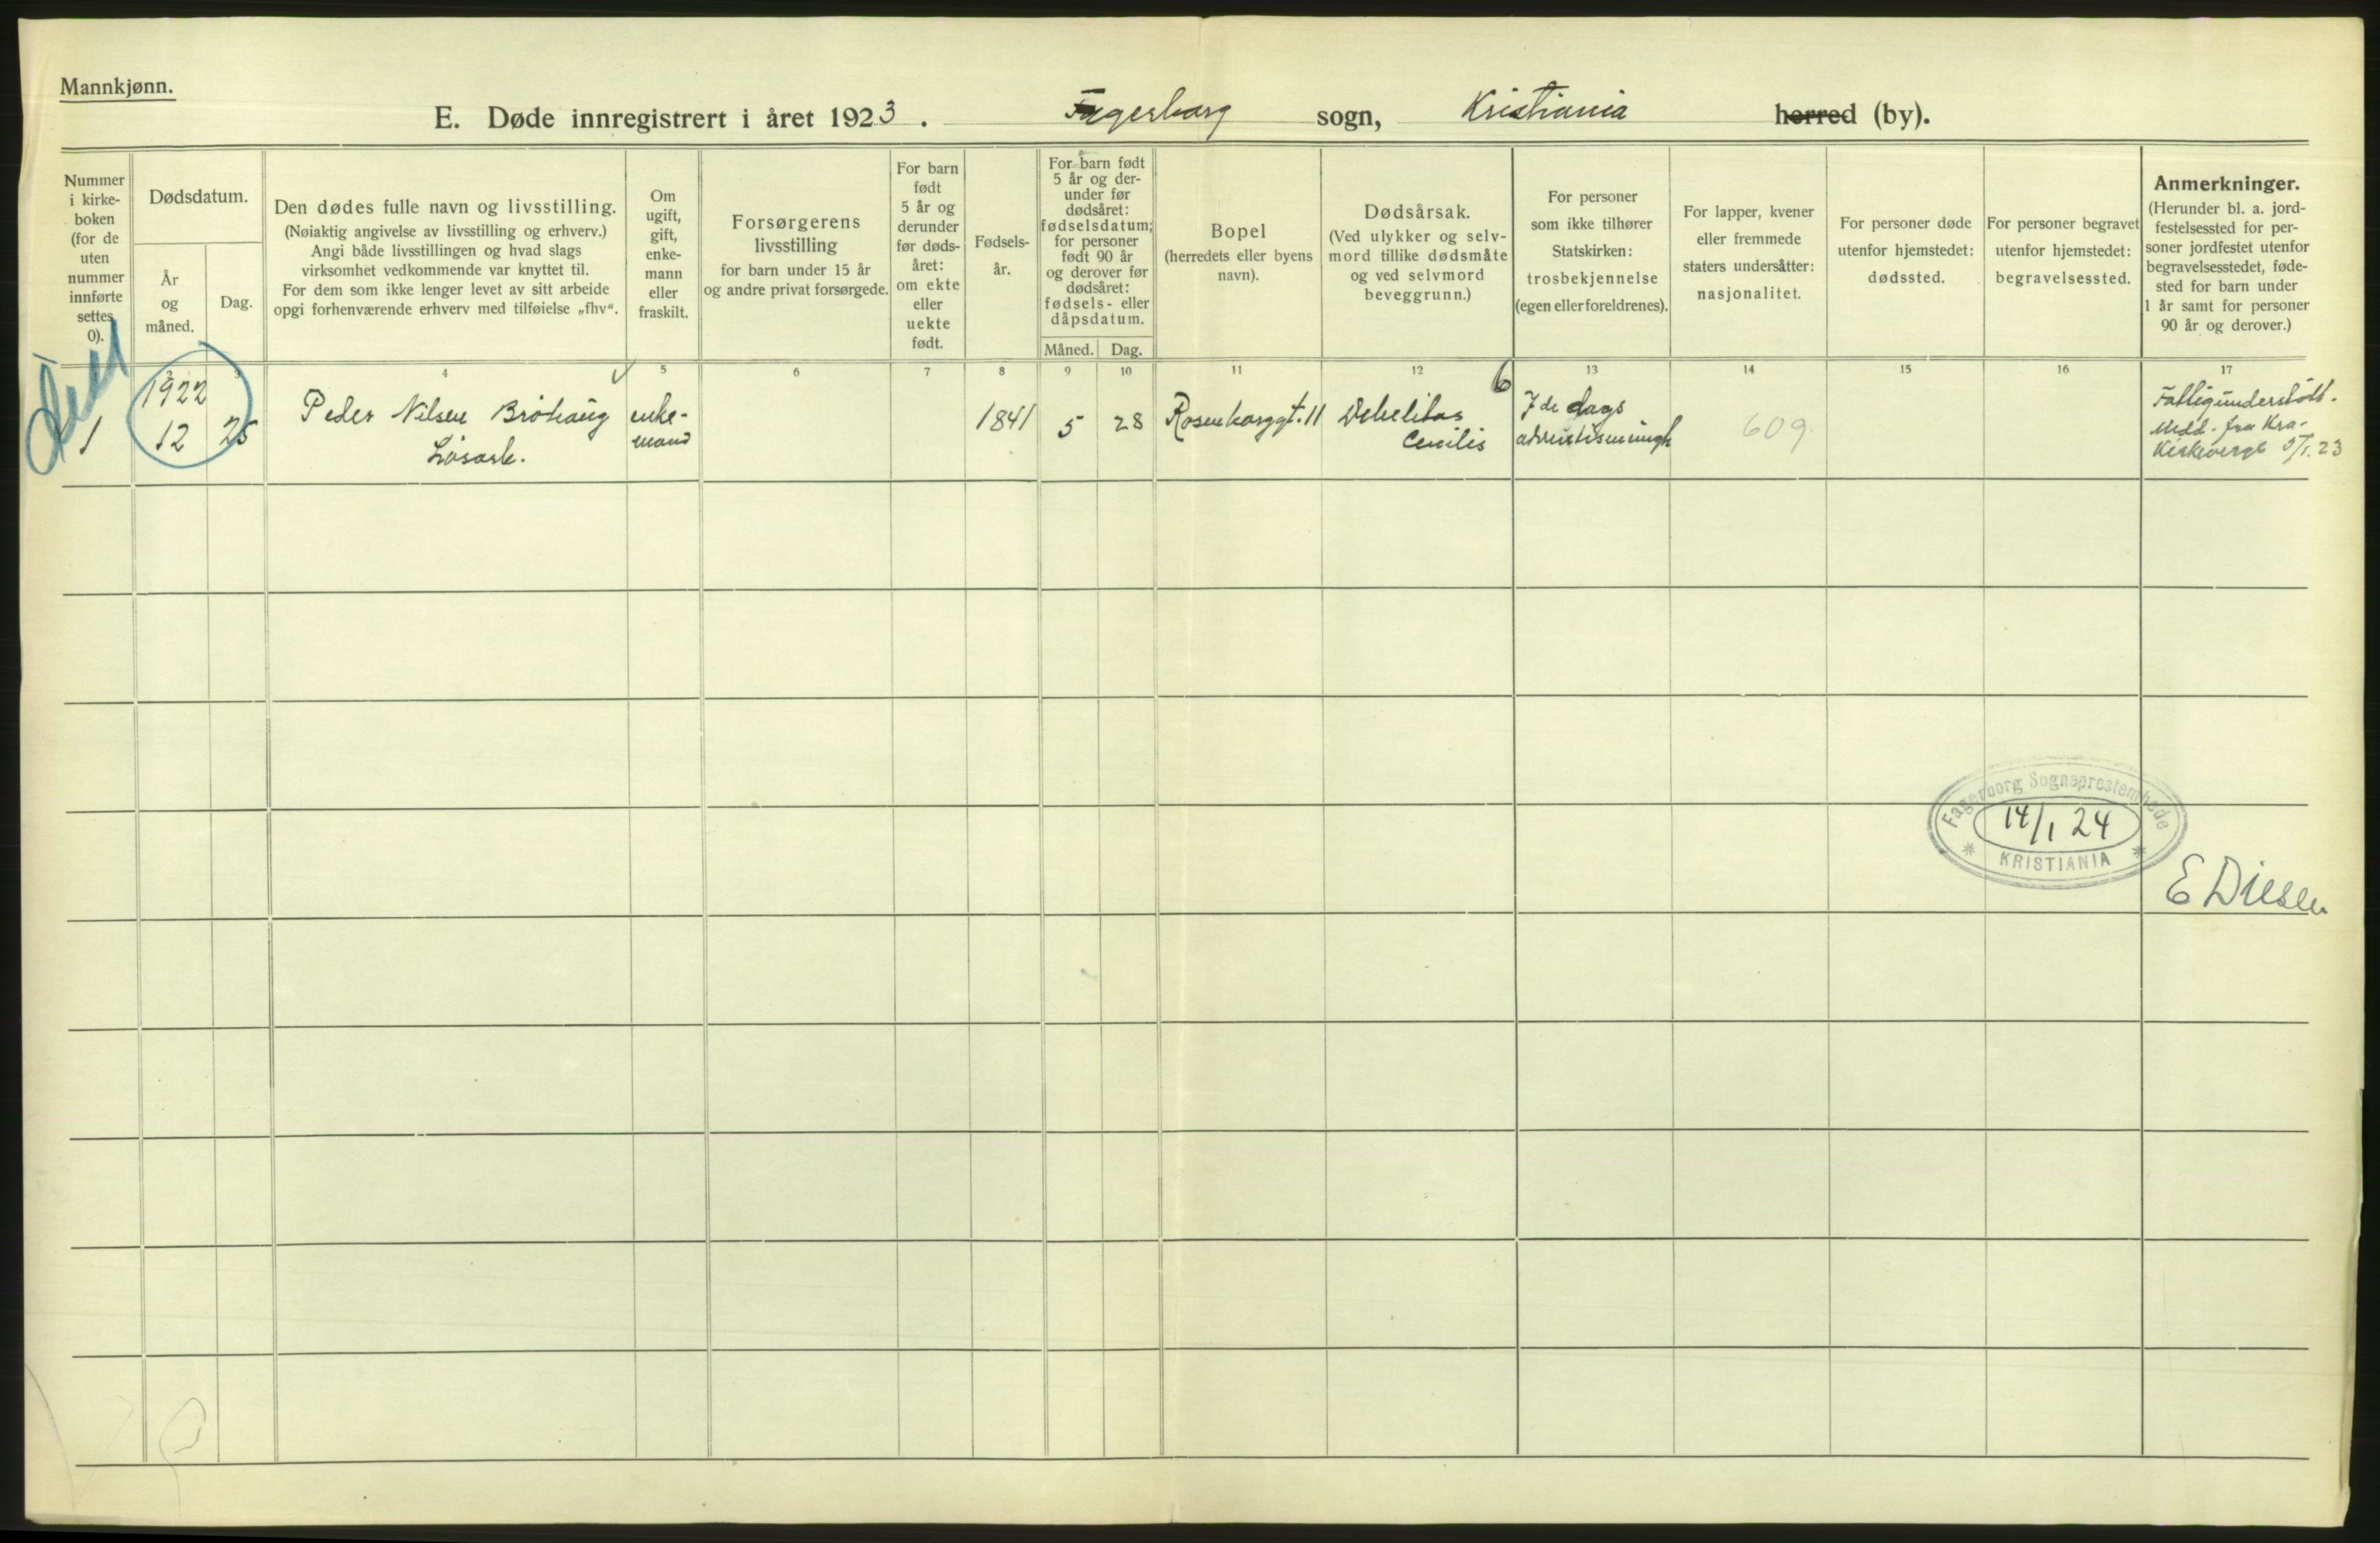 Mannkjønn.
E. Døde innregistrert i året 1923. Fagerborg sogn, Kristiania herred (by).
Nummer
i kirke-
boken
(for de
uten
nummer
innførte
settes
0).
Dødsdatum.
År
og
måned.
Dag.
Den dødes fulle navn og livsstilling.
(Nøiaktig angivelse av livsstilling og erhverv.)
Angi både livsstillingen og hvad slags
virksomhet vedkommende var knyttet til.
For dem som ikke lenger levet av sitt arbeide
opgi forhenværende erhverv med tilføielse „fhv“.
Om
ugift,
gift,
enke-
mann
eller
fraskilt.
Forsørgerens
livsstilling
for barn under 15 år
og andre privat forsørgede.
For barn
født
5 år og
derunder
før døds-
året:
om ekte
eller
uekte
født.
Fødsels-
år.
For barn født
5 år og der-
under før
dødsåret:
fødselsdatum;
for personer
født 90 år
og derover før
dødsåret:
fødsels- eller
dåpsdatum.
Måned. Dag.
Bopel
(herredets eller byens
navn).
Dødsårsak.
(Ved ulykker og selv-
mord tillike dødsmåte
og ved selvmord
beveggrunn.)
For personer
som ikke tilhører
Statskirken:
trosbekjennelse
(egen eller foreldrenes).
For lapper, kvener
eller fremmede
staters undersåtter:
nasjonalitet.
For personer døde
utenfor hjemstedet:
dødssted.
For personer begravet
utenfor hjemstedet:
begravelsessted.
Anmerkninger.
(Herunder bl. a. jord-
festelsessted for per-
soner jordfestet utenfor
begravelsesstedet, føde-
sted for barn under
1 år samt for personer
90 år og derover.)
3 4 5 6 7 8 9 10 11 12 13 14 15 16 17
1
1922
12 25
Peder Nilsen Bröhaug
Lösarb.
enke-
mand
1841 5 28
Rosenborggt. 11
Debelitas
Cenilis
6
7de dags
adventismenigh
609.
Fattigunderstött.
Medd. fra Kra.
Kirkeverge 5/1.23
Fagerborg Sogneprestembede
14/1 24
* KRISTIANIA *
E Diesen